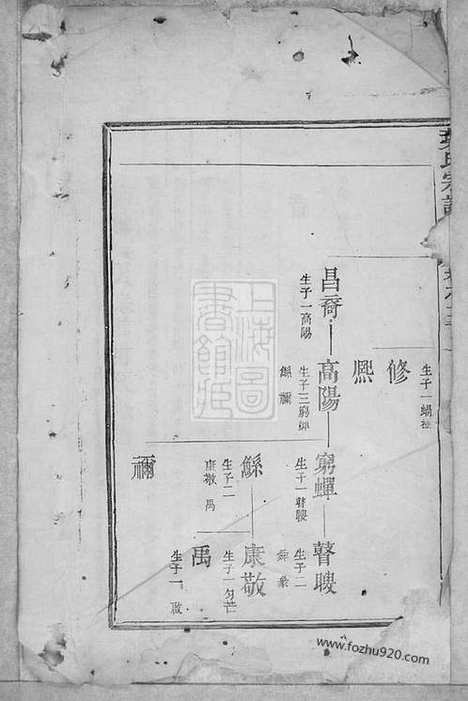 氏宗譜
修
生子一
熙
昌裔
生子一高陽
高陽
生子三窮蟬
鯀 禰
窮蟬
生子一瞽瞍
瞽瞍
生子二
舜 象
鯀
生子二
康敬 禹
康敬
生子一句芒
禰
禹
生子一 啟
上海圖書館藏
www.fozhu920.com